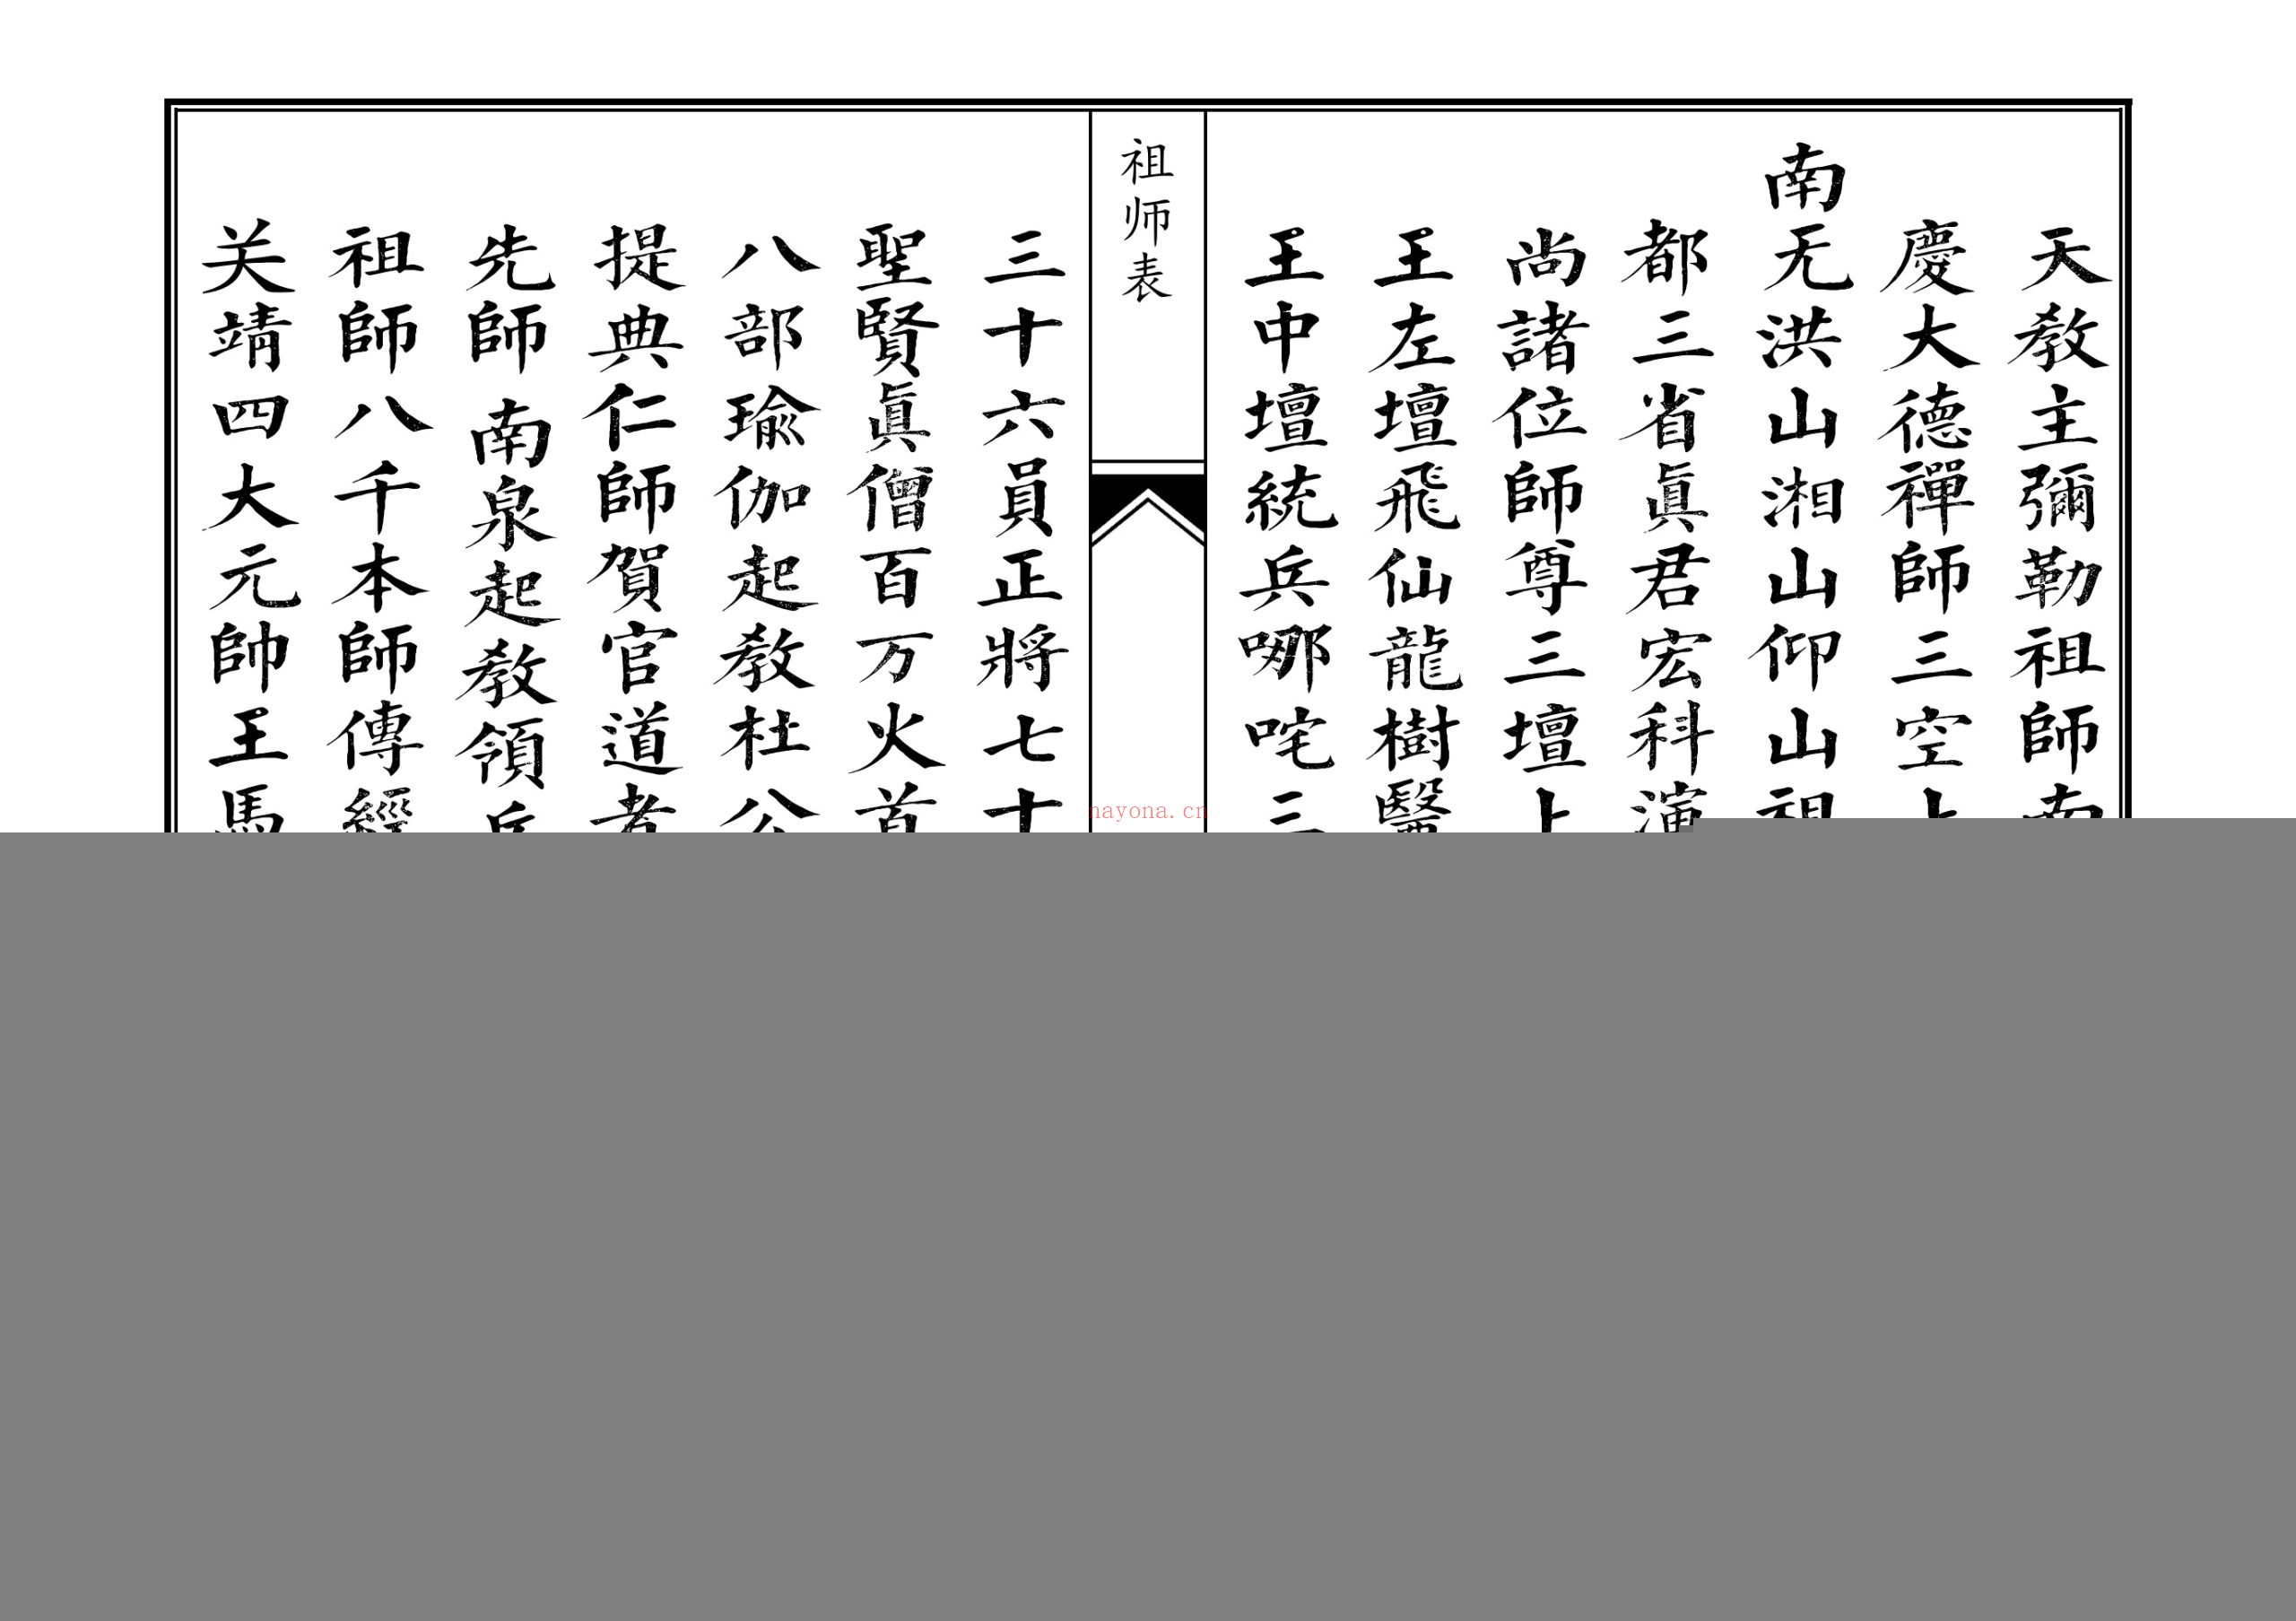 天教主彌勒祖師南
慶大德禪師三空上
南无洪山湘山仰山祖
都三省眞君宏科演
尚諸位師尊三壇上
王左壇飛仙龍樹醫
王中壇統兵哪咤三
祖师表
三十六員正將七十
聖賢眞僧百万火首
八部瑜伽起教杜公
提典仁師賀官道者
先師南泉起教領兵
祖師八千本師傳經
关靖四大元帥王馬
nayona.cn